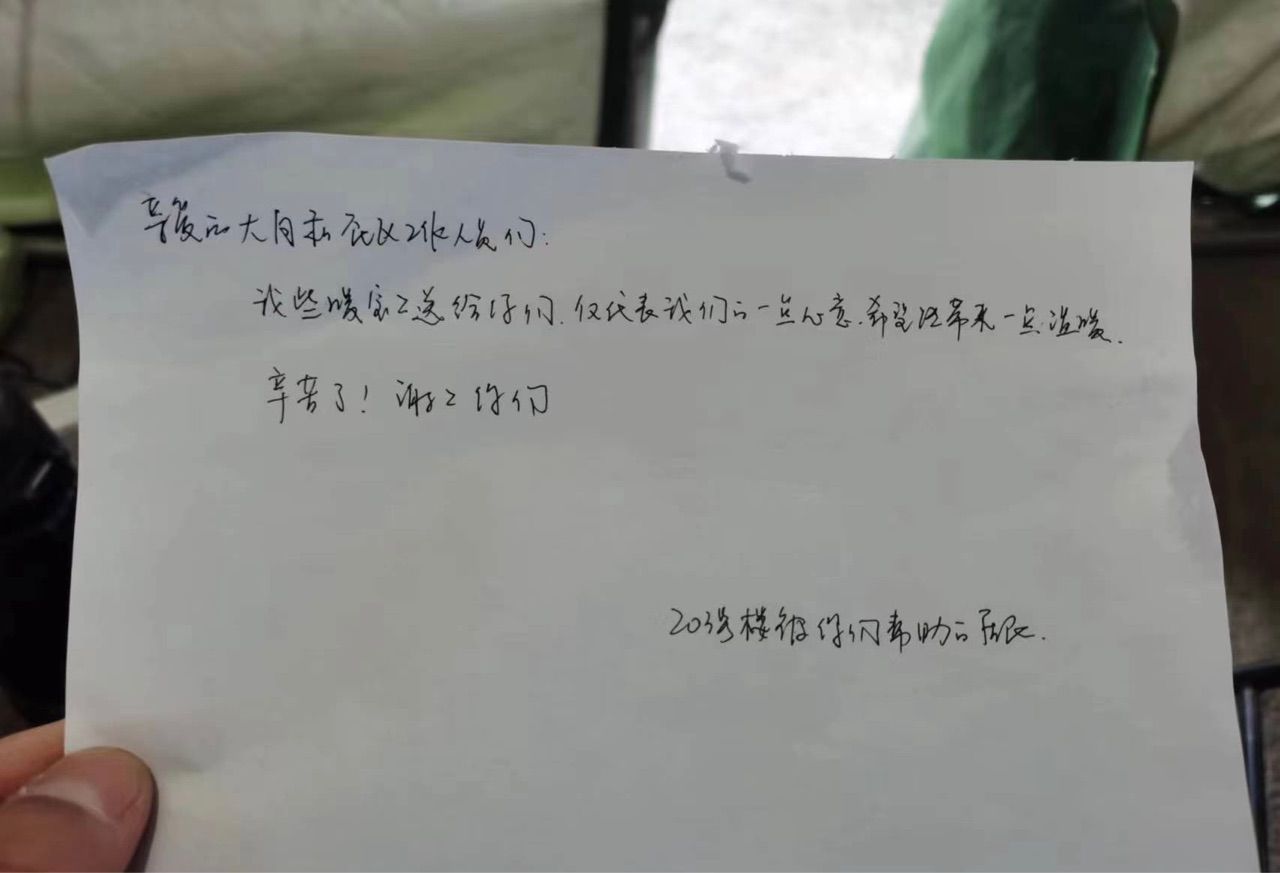 亲爱的大白和社区工作人员们:
这些暖宝宝送给你们,仅代表我们的一点心意,希望能带来一点温暖.
辛苦了!谢谢你们
20号楼被你们帮助的居民.